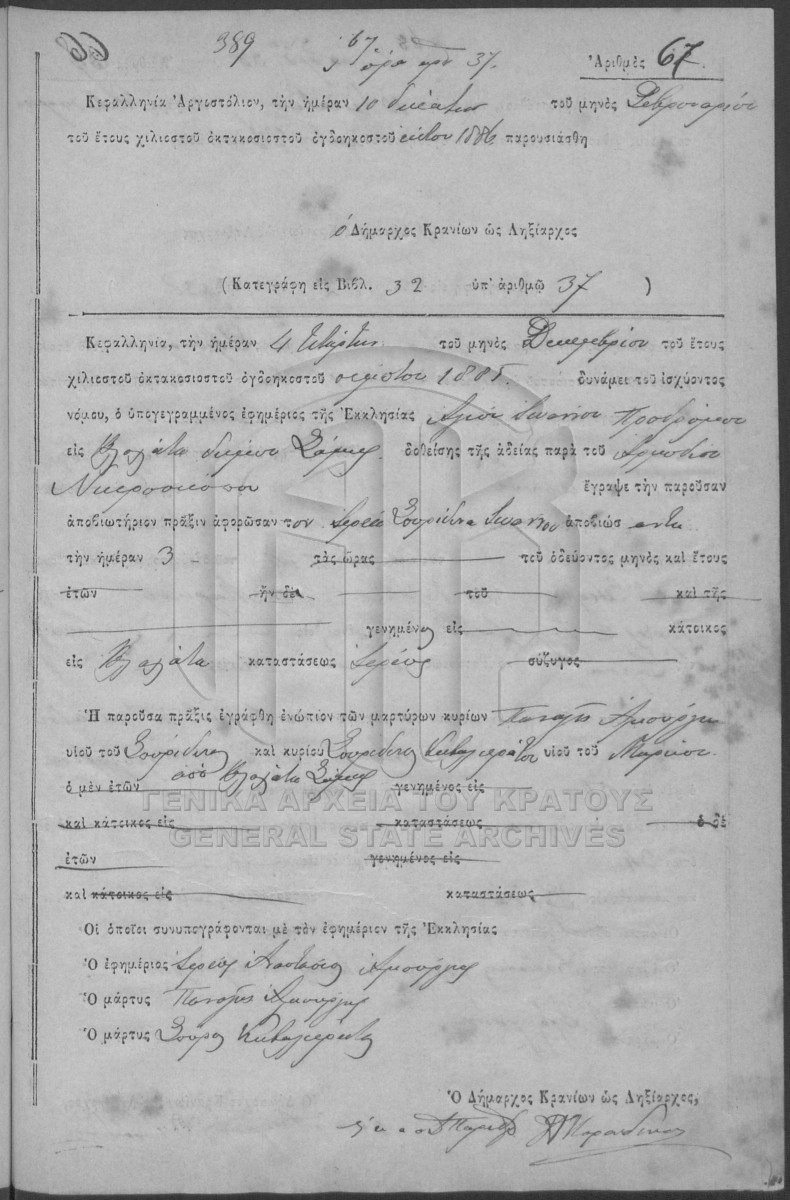 66 389 67
37. Ἀριθμὸς 67.
Κεφαλληνία Ἀργοστόλιον, τὴν ἡμέραν 10 δεκάτην τοῦ μηνὸς Φεβρουαρίου
τοῦ ἔτους χιλιοστοῦ ὀκτακοσιοστοῦ ὀγδοηκοστοῦ ἕκτου 1886 παρουσιάσθη
ὁ Δήμαρχος Κρανίων ὡς Ληξίαρχος
(Κατεγράφη εἰς Βιβλ. 32 ὑπ' ἀριθμῷ 37)
Κεφαλληνία, τὴν ἡμέραν 4 τετάρτην τοῦ μηνὸς Δεκεμβρίου τοῦ ἔτους
χιλιοστοῦ ὀκτακοσιοστοῦ ὀγδοηκοστοῦ πέμπτου 1885. δυνάμει τοῦ ἰσχύοντος
νόμου, ὁ ὑπογεγραμμένος ἐφημέριος τῆς Ἐκκλησίας Ἁγίου Ἰωάννου Προδρόμου
εἰς Βλαχάτα δήμου Σάμης δοθείσης τῆς ἀδείας παρὰ τοῦ
ἔγραψε τὴν παροῦσαν
ἀποβιωτήριον πρᾶξιν ἀφορῶσαν τον Ἱερέα Σπυρίδωνα Ἰωάννου ἀποβιώσαντα
τὴν ἡμέραν 3 τὰς ὥρας τοῦ ὁδεύοντος μηνὸς καὶ ἔτους
ἐτῶν ἦν δὲ τοῦ καὶ τῆς
γενημένος εἰς κάτοικος
εἰς Βλαχάτα καταστάσεως Ἱερεύς σύζυγος
Ἡ παροῦσα πρᾶξις ἐγράφθη ἐνώπιον τῶν μαρτύρων κυρίων Παναγῆς Ἀμούργη
υἱοῦ τοῦ Σπυρίδωνος καὶ κυρίου Σπυρίδωνος υἱοῦ τοῦ Μαρίνου
ἀπὸ Βλαχάτα Σάμης
ὁ μὲν ἐτῶν γενημένος εἰς
ΓΕΝΙΚΑ ΑΡΧΕΙΑ ΤΟΥ ΚΡΑΤΟΥΣ
καὶ κάτοικος εἰς καταστάσεως ὁ δὲ
GENERAL STATE ARCHIVES
ἐτῶν γενημένος εἰς
καὶ κάτοικος εἰς καταστάσεως
Οἱ ὁποῖοι συνυπογράφονται μὲ τὸν ἐφημέριον τῆς Ἐκκλησίας
Ὁ ἐφημέριος Ἱερεύς Ἀναστάσιος Ἀμούργης
Ὁ μάρτυς Παναγῆς Ἀμούργης
Ὁ μάρτυς
Ὁ Δήμαρχος Κρανίων ὡς Ληξίαρχος,